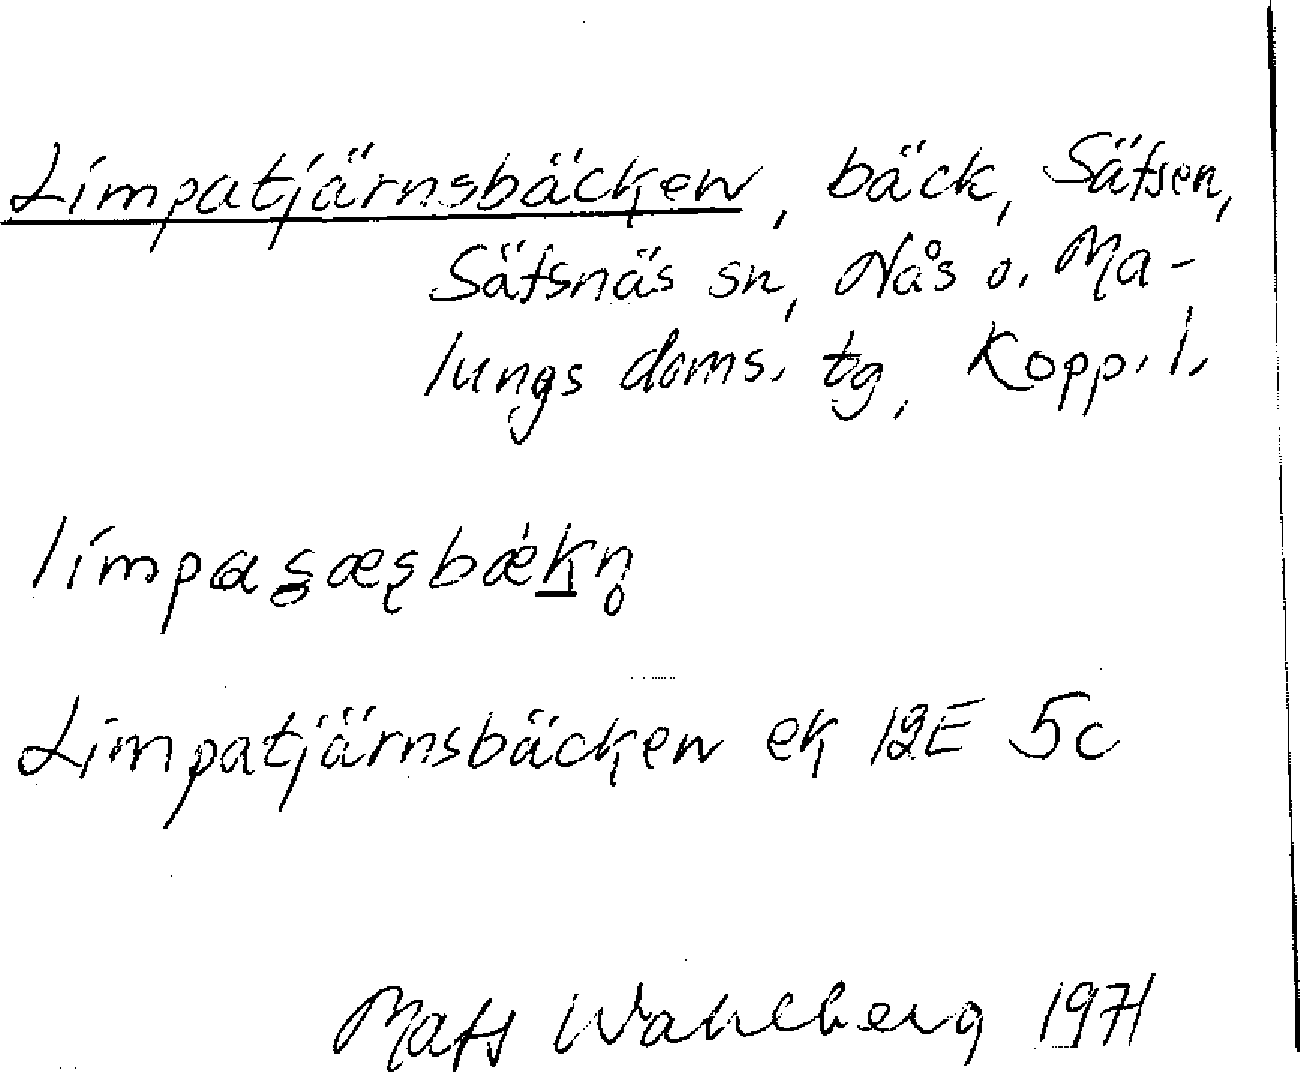 Limpatjärnsbäcken, bäck, Säfsen,
Säfsnäs sn, Nås o. Ma-
lungs doms. tg, Kopp. l.
Limpatjärnsbäcken ek 12E 5c
Mats Wahlberg 1971